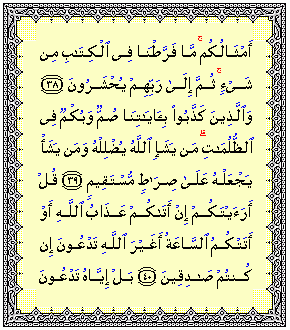 أَمْثَالُكُم ۚ مَّا فَرَّطْنَا فِى ٱلْكِتَـٰبِ مِن
شَىْءٍ ۚ ثُمَّ إِلَىٰ رَبِّهِمْ يُحْشَرُونَ ﴿٣٨﴾
وَٱلَّذِينَ كَذَّبُوا۟ بِـَٔايَـٰتِنَا صُمٌّ وَبُكْمٌ فِى
ٱلظُّلُمَـٰتِ ۗ مَن يَشَإِ ٱللَّهُ يُضْلِلْهُ وَمَن يَشَأْ
يَجْعَلْهُ عَلَىٰ صِرَٰطٍ مُّسْتَقِيمٍ ﴿٣٩﴾ قُلْ
أَرَءَيْتَكُمْ إِنْ أَتَىٰكُمْ عَذَابُ ٱللَّهِ أَوْ
أَتَتْكُمُ ٱلسَّاعَةُ أَغَيْرَ ٱللَّهِ تَدْعُونَ إِن
كُنتُمْ صَـٰدِقِينَ ﴿٤٠﴾ بَلْ إِيَّاهُ تَدْعُونَ